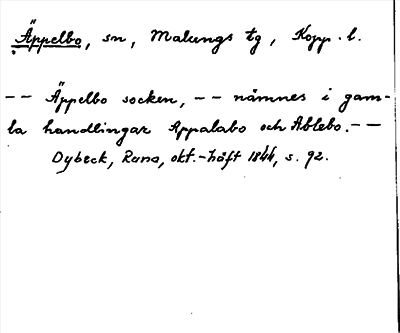 Äppelbo, sn, Malungs tg, Kopp. l.
-- Äppelbo socken, -- nämnes i gam-
la handlingar Appalabo och Äblebo. --
Dybeck, Runa, okt.-häft 1844, s. 92.